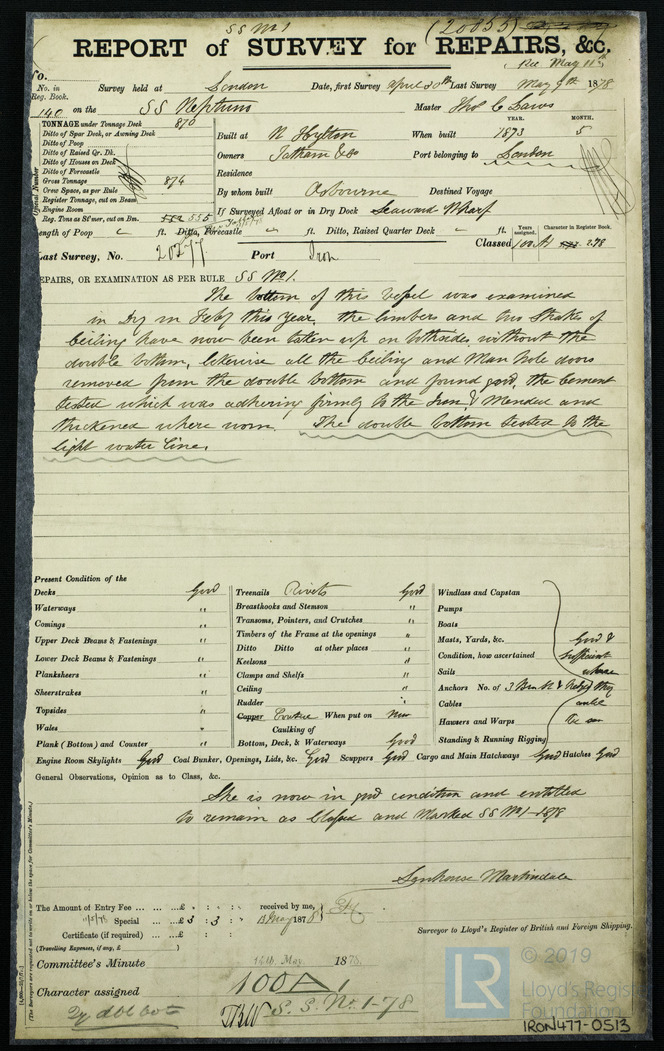 SS No 1 (20855)
REPORT of SURVEY for REPAIRS, &c.
Rec May 11th
No. in Reg. Book. Survey held at London Date, first Survey April 30th Last Survey May 9th 1878
140 on the SS Neptune Master Thos C Laws
TONNAGE under Tonnage Deck 870
Ditto of Spar Deck, or Awning Deck
Ditto of Poop
Ditto of Raised Qr. Dk.
Ditto of Houses on Deck
Ditto of Forecastle
Gross Tonnage 874
Crew Space, as per Rule
Register Tonnage, cut on Beam
Engine Room
Reg. Tons as St'mer, cut on Bm. 555
Built at N Hylton When built YEAR. 1873 MONTH. 5
Owners Tatham &Co Port belonging to London
Residence
By whom built Osbourne Destined Voyage
If Surveyed Afloat or in Dry Dock Seaward Wharf
Length of Poop ft. Ditto, Forecastle ft. Ditto, Raised Quarter Deck ft.
Years assigned. Character in Register Book.
Last Survey, No. 20277 Port Iron Classed 100 A1 2.78
REPAIRS, OR EXAMINATION AS PER RULE SS No 1.
The bottom of this Vessel was examined
in Dry in Feby this year, the limbers and two Strakes of
Ceiling have now been taken up on bothsides, without the
double bottom, likewise all the Ceiling and Man hole doors
removed from the double bottom and found good, the Cement
tested which was adhering firmly to the Iron & Mended and
thickened where worn. The double bottom tested to the
light water line.
Present Condition of the
Decks Good
Waterways "
Comings "
Upper Deck Beams & Fastenings "
Lower Deck Beams & Fastenings "
Planksheers "
Sheerstrakes "
Topsides "
Wales "
Plank (Bottom) and Counter "
Treenails Rivets Good
Breasthooks and Stemson "
Transoms, Pointers, and Crutches "
Timbers of the Frame at the openings "
Ditto Ditto at other places "
Keelsons "
Clamps and Shelfs "
Ceiling "
Rudder "
Copper When put on
Caulking of
Bottom, Deck, & Waterways Good
Windlass and Capstan
Pumps
Boats
Masts, Yards, &c. Good &
Condition, how ascertained Sufficient
Sails
Anchors No. of 3
Cables
Hawsers and Warps
Standing & Running Rigging
Engine Room Skylights Good Coal Bunker, Openings, Lids, &c. Good Scuppers Good Cargo and Main Hatchways Good Hatches Good
General Observations, Opinion as to Class, &c.
She is now in good condition and entitled
to remain as Classed and Marked SS No 1-1878
Senhouse Martindale
The Amount of Entry Fee ... ... ...£ : : received by me,
Special ... ...£ 3 : 3 : 13 May 1878
Certificate (if required) ... ...£ : :
(Travelling Expenses, if any, £ )
Surveyor to Lloyd's Register of British and Foreign Shipping.
Committee's Minute 14th May 1878.
Character assigned 100 A 1
S. S. No. 1-78
© 2019
LR
Lloyd's Register
Foundation
IRON477-0513